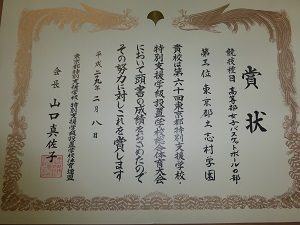 賞状
競技種目 高等部女子バスケットボールの部
第三位 東京都立志村学園
貴校は第二十四回東京都特別支援学校・
特別支援学校設置学校総合体育大会
において頭書の成績をおさめたので
その努力に対しこれを賞します
平成二九年二月八日
東京都特別支援学校・特別支援学級設置学校体育連盟
会長 山口真佐子